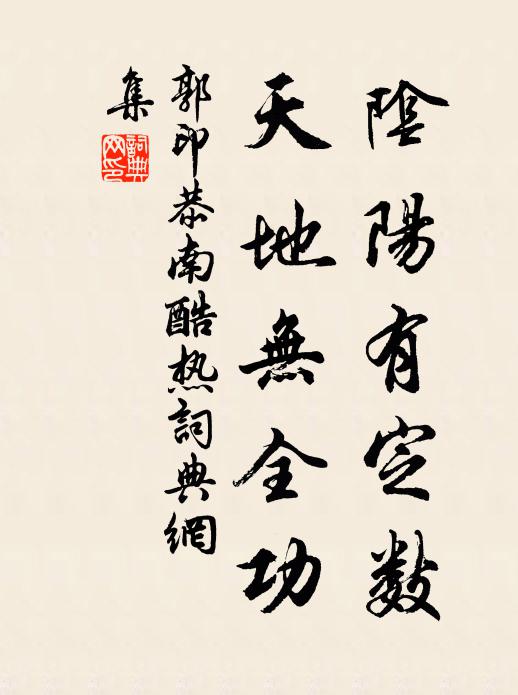 陰陽有定數
天地無全功
郭印恭南酷热詞典網
集
詞典網印